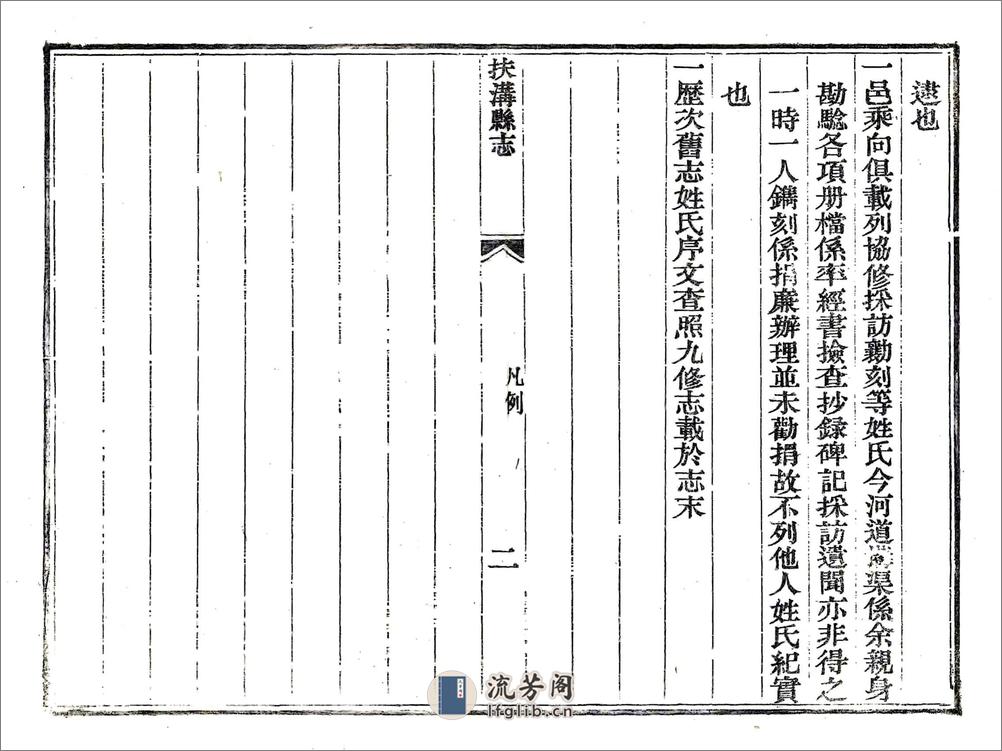 逮也
一邑乘向俱載列協修採訪勷刻等姓氏今河道溝渠係余親身
勘驗各項册檔係率經書撿查抄錄碑記採訪遺聞亦非得之
一時一人鐫刻係捐廉辦理並未勸捐故不列他人姓氏紀實
也
一歷次舊志姓氏序文查照九修志載於志末
扶溝縣志
凡例
二
流芳阁
lfglib.cn